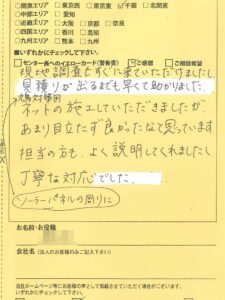 ○関東エリア □東京西 □東京東 □千葉 □北関東
○中部エリア □愛知
○近畿エリア □大阪 □京都 □奈良
○四国エリア □高知
○九州エリア □熊本 □九州
■いずれかにチェックして下さい。
□センター長へのイエローカード(警告書) □ご感想 □ご相談希望
現地調査もすぐに来ていただけましたし
見積りが出るまでも早くて助かりました
鳩対策用
ネットの施工していただきましたが
あまり目立たず良かったなと思っています
担当の方も、よく説明してくれましたし
丁寧な対応でした。
ソーラーパネルの周りに
お名前・お役職
会社名(法人のお客様のみご記入下さい)
当社ホームページ等にお客様の声として掲載させていただく場合がございます。
いずれかにチェックして下さい。